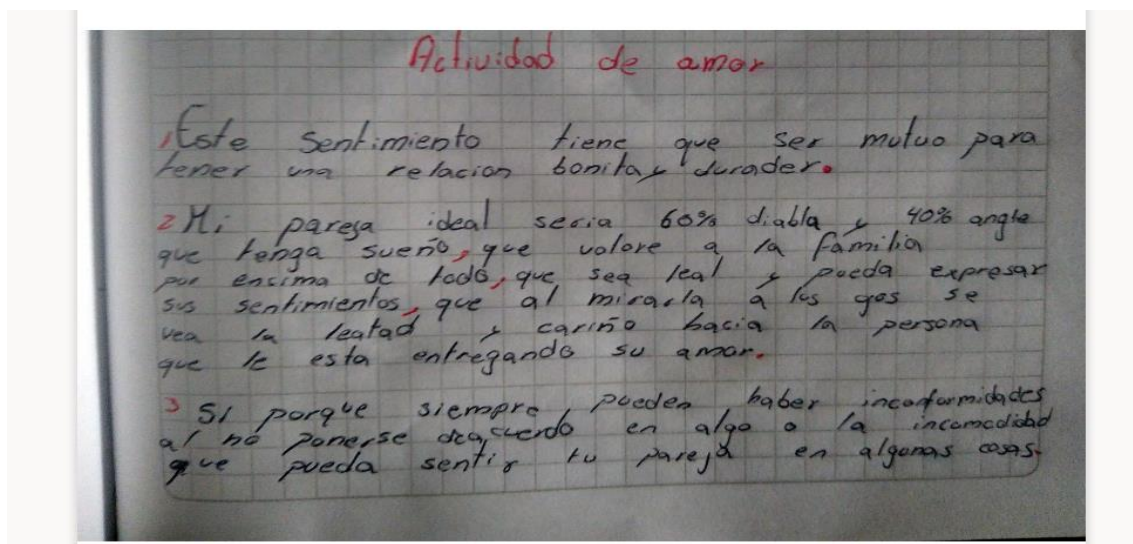 Actividad de amor
1 Este sentimiento tiene que ser mutuo para
tener una relacion bonita y durader.
2 Mi pareja ideal seria 60% diabla y 40% angle
que tenga sueño, que valore a la familia
por encima de todo, que sea leal y pueda expresar
sus sentimientos, que al mirarla a los gos se
vea la leatad y cariño hacia la persona
que le esta entregando su amor.
3 SI porque siempre pueden haber inconformidades
al no ponerse deacuerdo en algo o la incomodidad
que pueda sentir tu pareja en algunas cosas.